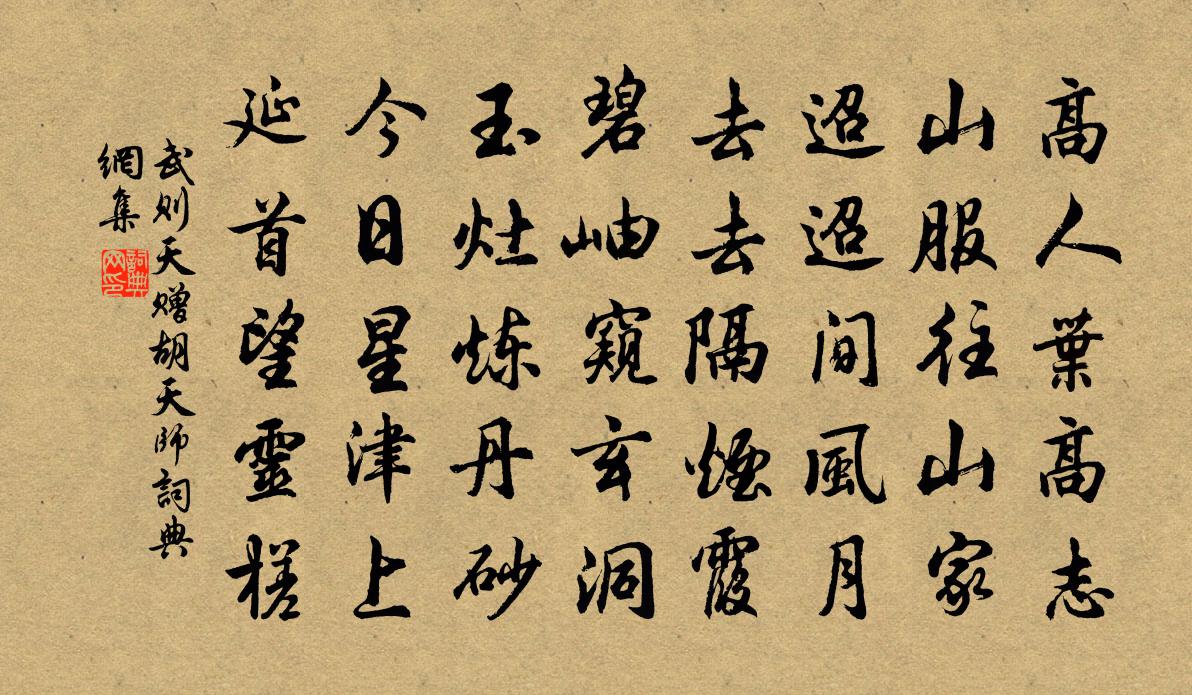 高人葉高志
山服往山家
迢迢間風月
去去隔煙霞
碧岫窺玄洞
玉灶炼丹砂
今日星津上
延首望靈槎
武则天赠胡天師詞典
網集
詞典
网印